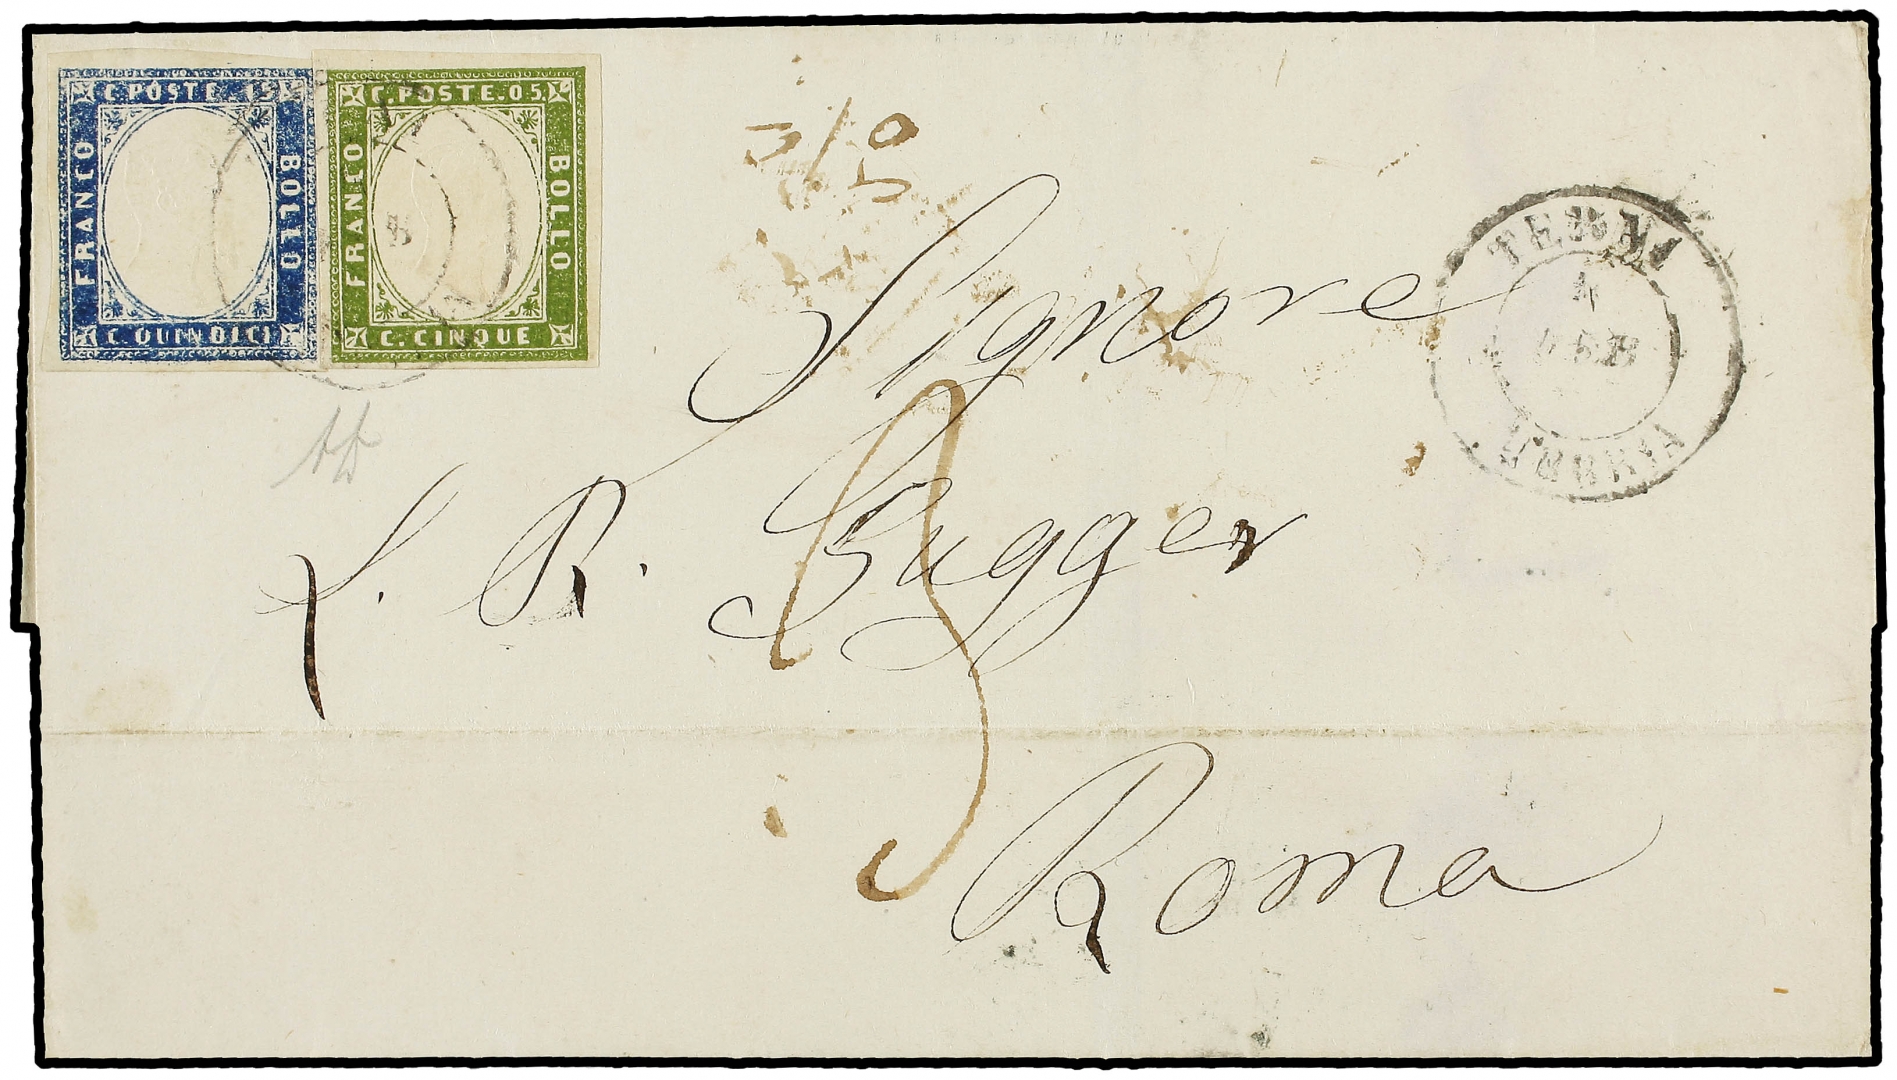 C. POSTE. 15
FRANCO
BOLLO
C. QUINDICI
C. POSTE. 05
FRANCO
BOLLO
C. CINQUE
TERNI
4
FEB
UMBRIA
Signore
S. R. Bugger
Roma
3